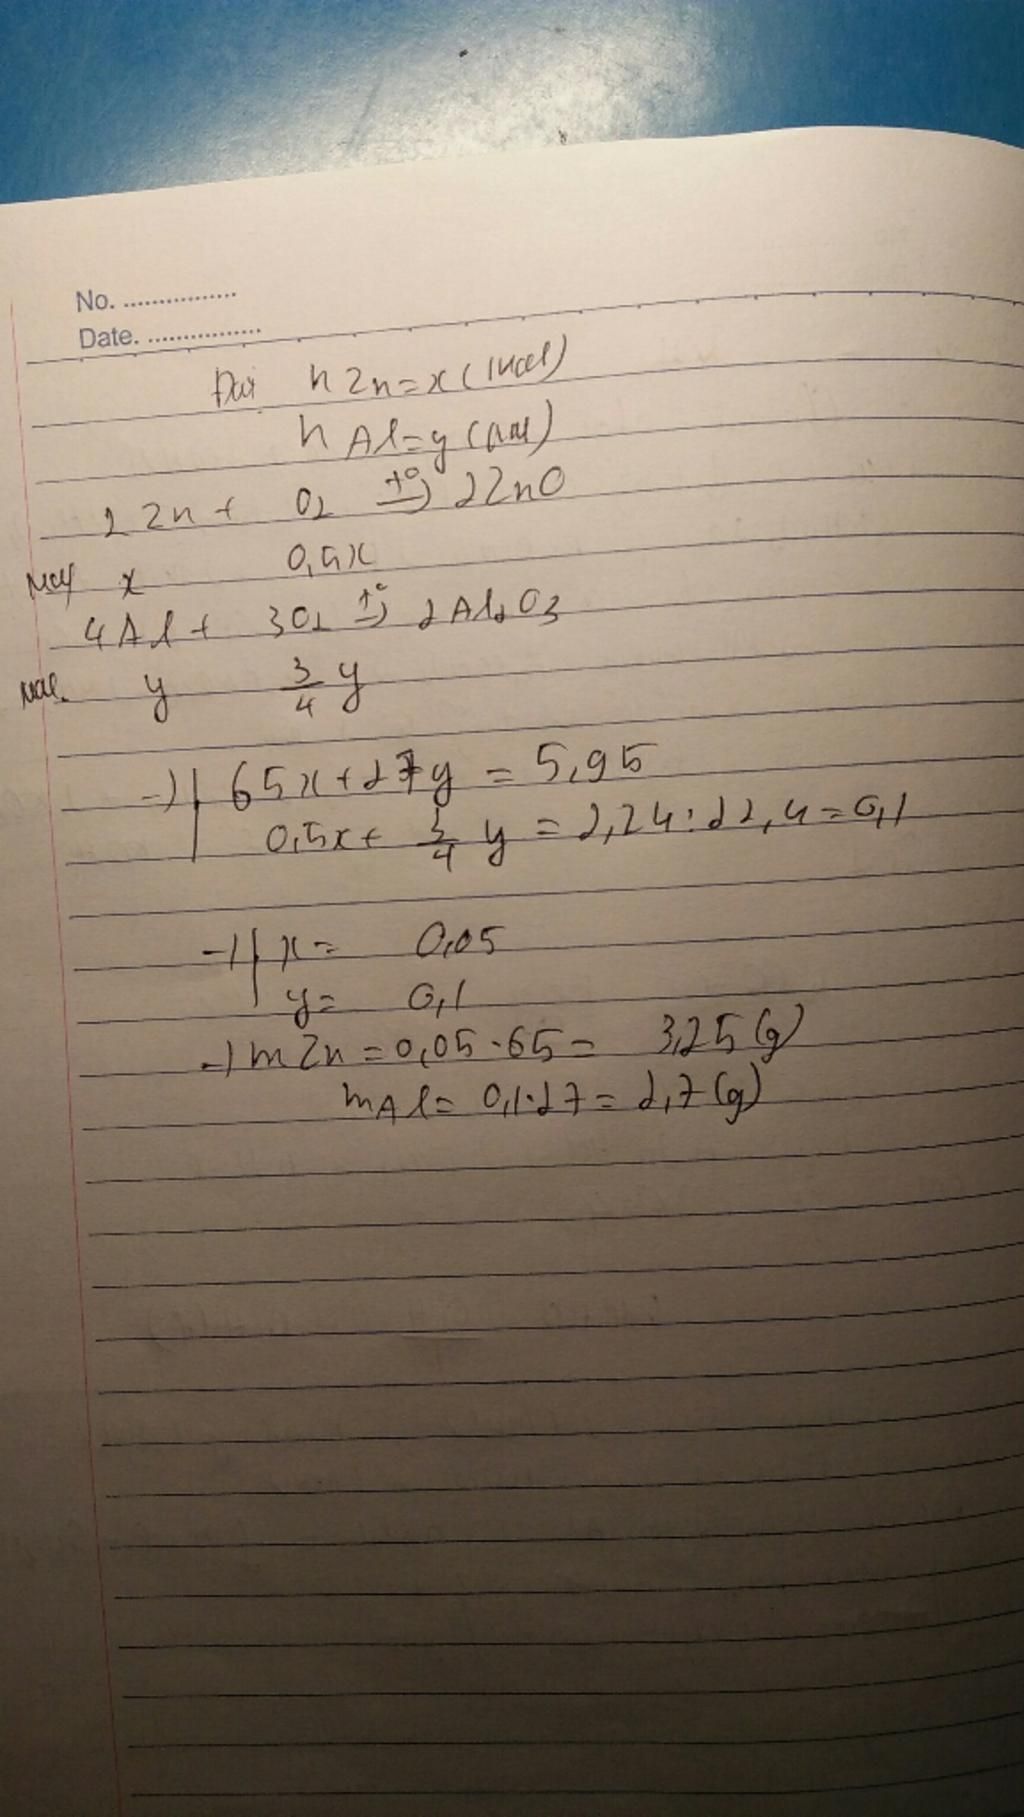 No. ................
Date. ................
Đặt nZn = x (mol)
nAl = y (mol)
2Zn + O2 t°→ 2ZnO
mol x 0,5x
4Al + 3O2 t°→ 2Al2O3
mol. y 3/4 y
→ | 65x + 27y = 5,95
0,5x + 3/4 y = 2,24 : 22,4 = 0,1
→ | x = 0,05
y = 0,1
→ mZn = 0,05 . 65 = 3,25 (g)
mAl = 0,1 . 27 = 2,7 (g)